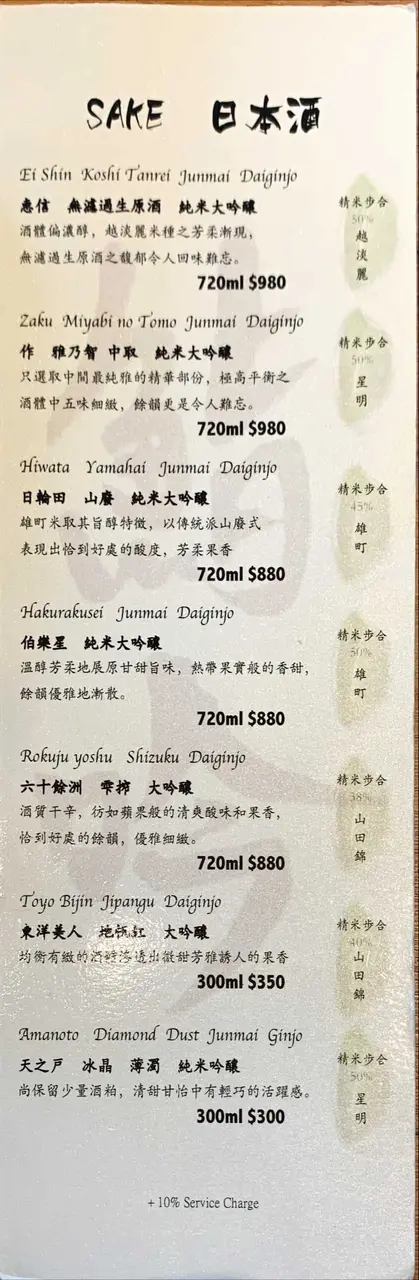 SAKE 日本酒
Ei Shin Koshi Tanrei Junmai Daiginjo
惠信 無濾過生原酒 純米大吟釀
酒體偏濃醇，越淡麗米種之芳柔漸現，
無濾過生原酒之馥郁令人回味難忘。
720ml $980
精米步合
50%
越淡麗
Zaku Miyabi no Tomo Junmai Daiginjo
作 雅乃智 中取 純米大吟釀
只選取中間最純雅的精華部份，極高平衡之
酒體中五味細緻，餘韻更是令人難忘。
720ml $980
精米步合
50%
星明
Hiwata Yamahai Junmai Daiginjo
日輪田 山廢 純米大吟釀
雄町米取其旨醇特徵，以傳統派山廢式
表現出恰到好處的酸度，芳柔果香
720ml $880
精米步合
45%
雄町
Hakurakusei Junmai Daiginjo
伯樂星 純米大吟釀
溫醇芳柔地展原甘甜旨味，熱帶果實般的香甜，
餘韻優雅地漸散。
720ml $880
精米步合
50%
雄町
Rokuju yoshu Shizuku Daiginjo
六十餘洲 雫搾 大吟釀
酒質干辛，彷如蘋果般的清爽酸味和果香，
恰到好處的餘韻，優雅細緻。
720ml $880
精米步合
38%
山田錦
Toyo Bijin Jipangu Daiginjo
東洋美人 地帆紅 大吟釀
均衡有緻的酒體滲透出微甜芳雅誘人的果香
300ml $350
精米步合
40%
山田錦
Amanoto Diamond Dust Junmai Ginjo
天之戶 冰晶 薄濁 純米吟釀
尚保留少量酒粕，清甜甘怡中有輕巧的活躍感。
300ml $300
精米步合
50%
星明
+10% Service Charge